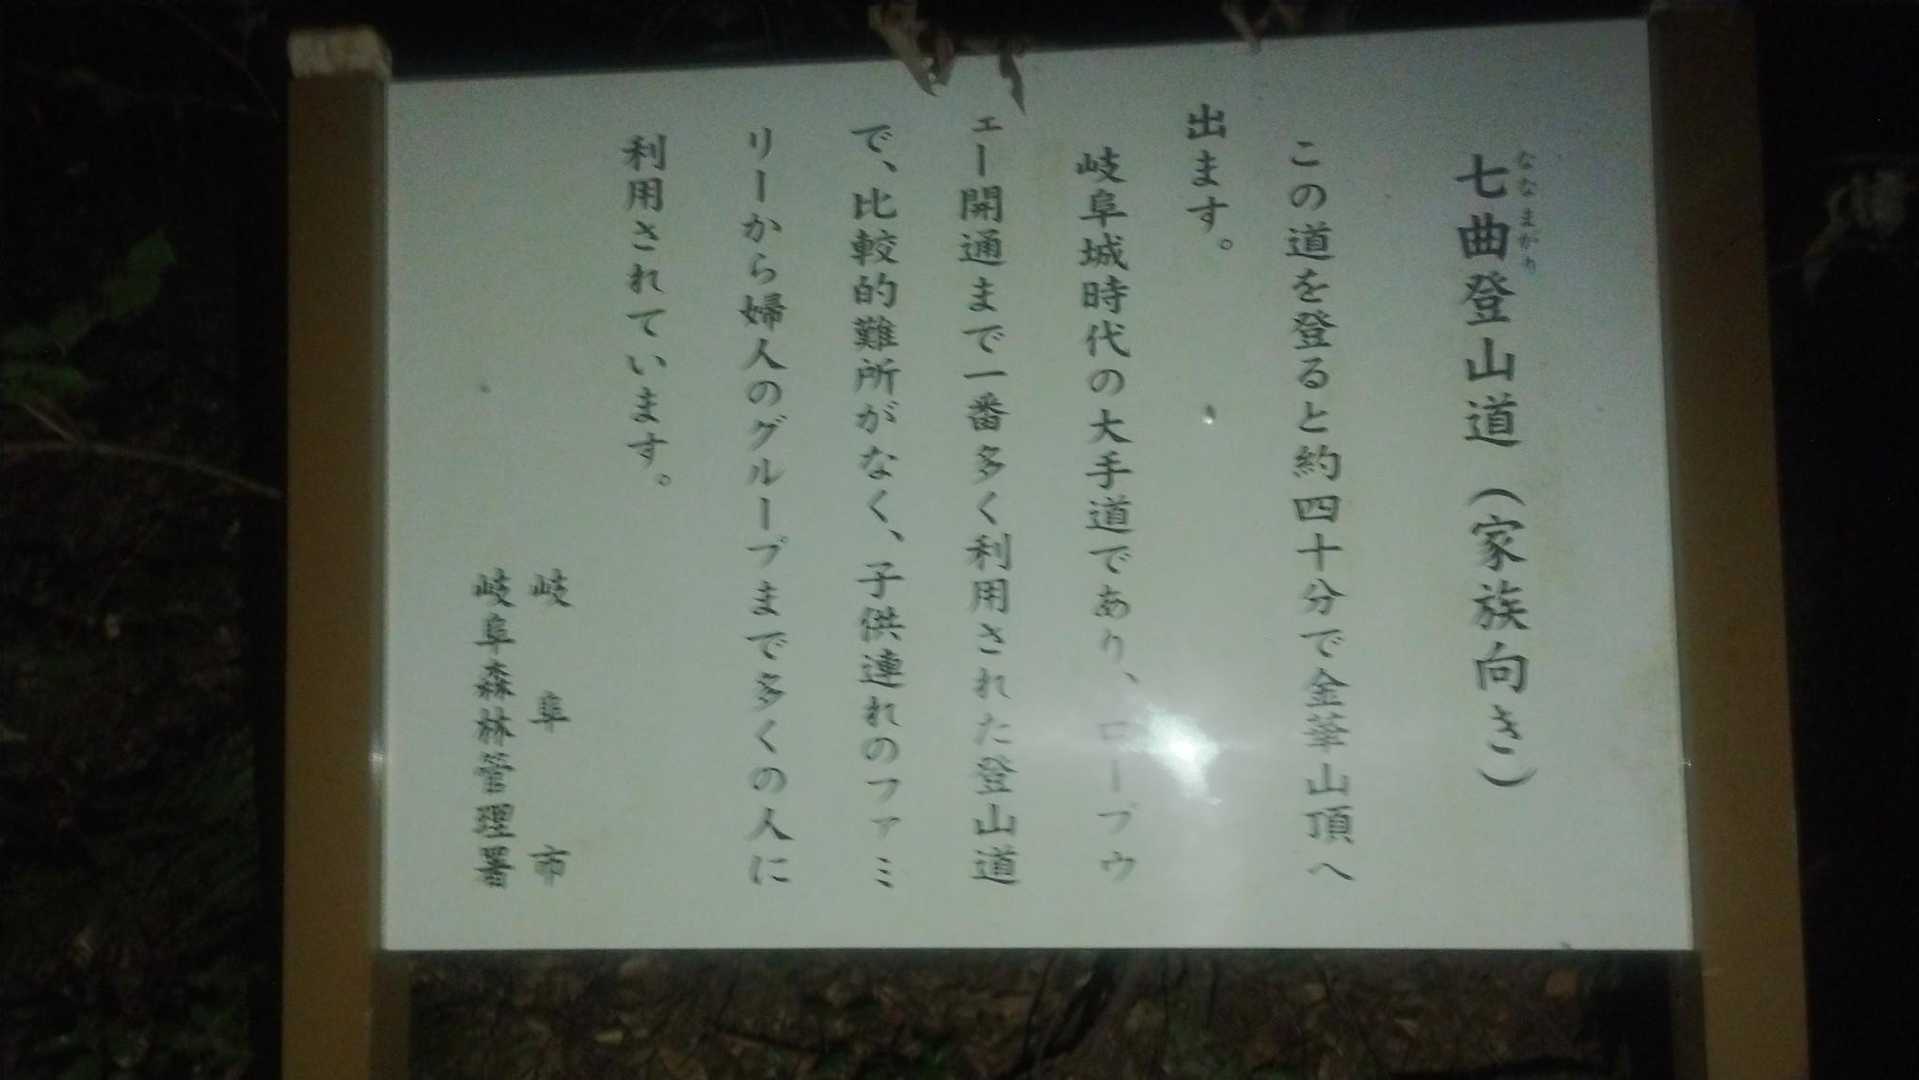 七曲登山道（家族向き）
ななまがり
この道を登ると約四十分で金華山頂へ
出ます。
岐阜城時代の大手道であり、ロープウ
ェー開通まで一番多く利用された登山道
で、比較的難所がなく、子供連れのファミ
リーから婦人のグループまで多くの人に
利用されています。
岐阜市
岐阜森林管理署